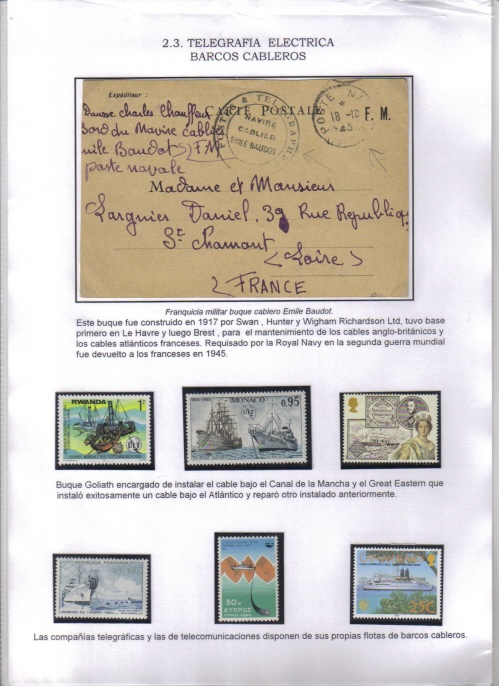 2.3. TELEGRAFIA ELECTRICA
BARCOS CABLEROS
Expéditeur :
Dausse Charles Chauffeur
CARTE POSTALE
F. M.
Bord du Navire cablier
Emile Baudot F M
poste navale
POSTES & TELEGRAPHES
NAVIRE
CABLIER
EMILE BAUDOT
POSTE NAVALE
18 -10
45
Madame et Monsieur
Largnier Daniel, 39 Rue République
St Chamont
(Loire)
FRANCE
Franquicia militar buque cablero Emile Baudot.
Este buque fue construido en 1917 por Swan , Hunter y Wigham Richardson Ltd, tuvo base
primero en Le Havre y luego Brest , para el mantenimiento de los cables anglo-británicos y
los cables atlánticos franceses. Requisado por la Royal Navy en la segunda guerra mundial
fue devuelto a los franceses en 1945.
RWANDA
1F
MONACO
0,95
Buque Goliath encargado de instalar el cable bajo el Canal de la Mancha y el Great Eastern que
instaló exitosamente un cable bajo el Atlántico y reparó otro instalado anteriormente.
60
ΚΥΠΡΟΣ
25c
Las compañías telegráficas y las de telecomunicaciones disponen de sus propias flotas de barcos cableros.